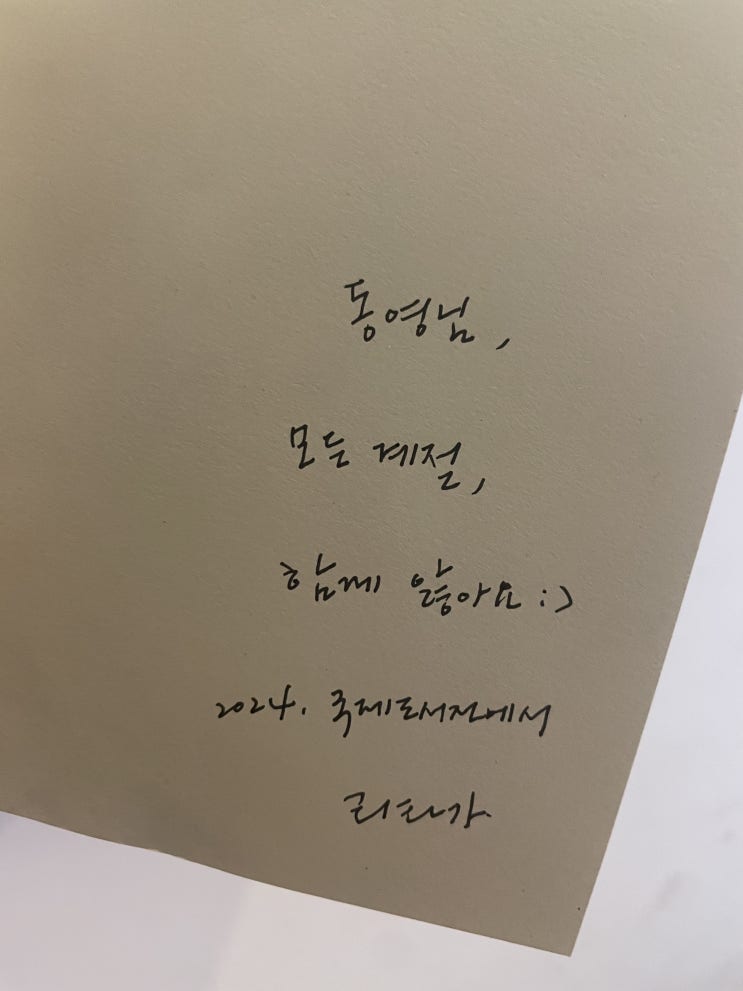 동영님,
모든 계절,
함께 앓아요 :)
2024. 국제도서전에서
리타가